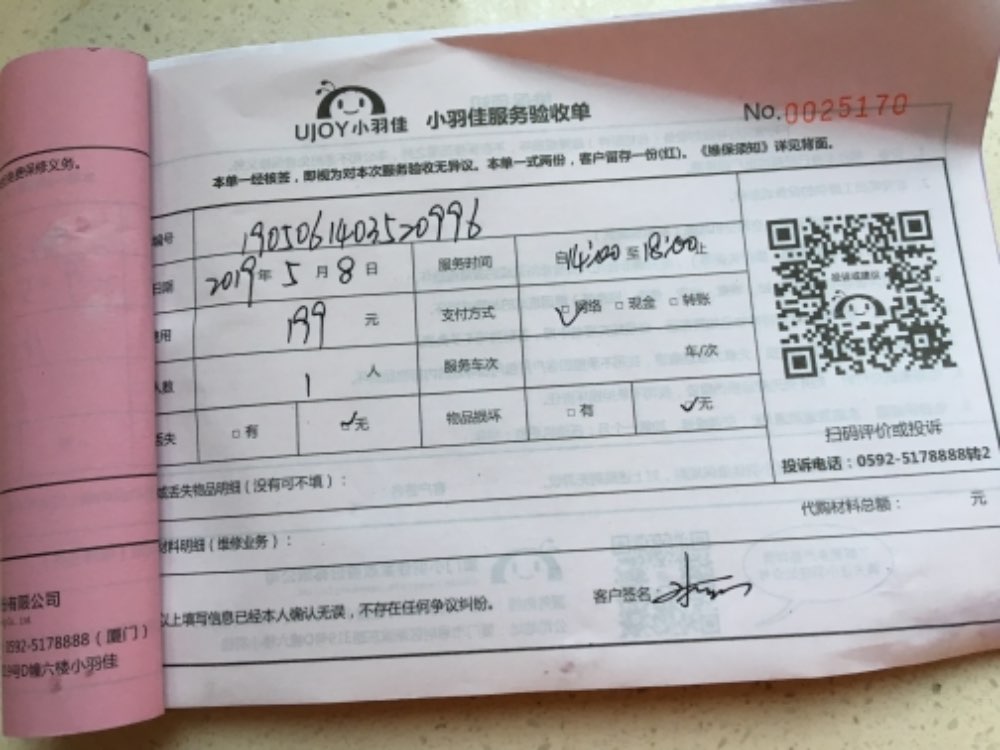 的免费保修义务。
UJOY小羽佳 小羽佳服务验收单
No.0025170
本单一经核签，即视为对本次服务验收无异议。本单一式两份，客户留存一份(红)。《维保须知》详见背面。
编号 1905061403520996
日期 2019年5月8日 服务时间 自14:00至18:00止
费用 199 元 支付方式 ☑网络 □现金 □转账
人数 1 人 服务车次 车/次
丢失 □有 ☑无 物品损坏 □有 ☑无
投诉或建议
扫码评价或投诉
投诉电话：0592-5178888转2
或丢失物品明细（没有可不填）：
代购材料总额： 元
材料明细（维修业务）：
以上填写信息已经本人确认无误，不存在任何争议纠纷。
客户签名：
份有限公司
0592-5178888（厦门）
19号D幢六楼小羽佳